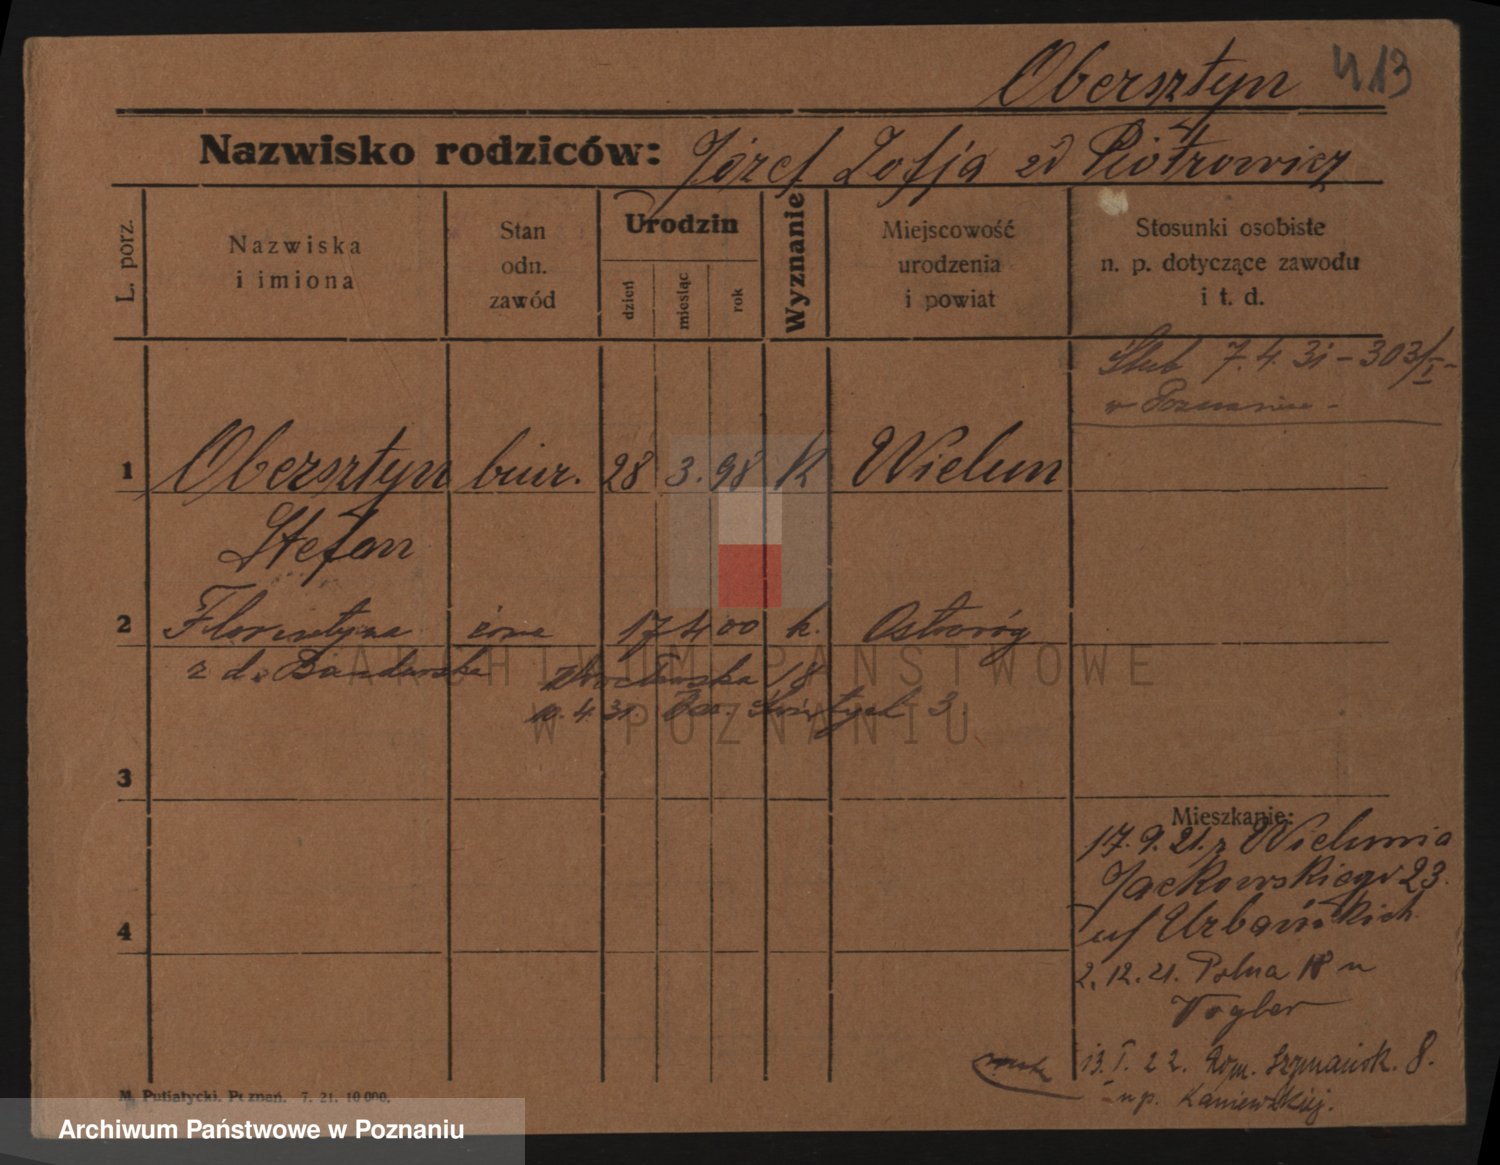 Obersztyn 413
Nazwisko rodziców: Józef Zofja zd Piotrowicz
L. porz.
Nazwiska
i imiona
Stan
odn.
zawód
Urodzin
dzień
miesiąc
rok
Wyznanie
Miejscowość
urodzenia
i powiat
Stosunki osobiste
n. p. dotyczące zawodu
i t. d.
Ślub 7. 4. 31 - 303/I
w Poznaniu -
1 Obersztyn biur. 28 3. 98 K Wielun
Stefan
2 Florentyna żona 17 4 00 k. Ostroróg
z d. Wrocławska 18
10. 4. 31 Świętych 3
ARCHIWUM PAŃSTWOWE
W POZNANIU
3
Mieszkanie:
17. 9. 21. z Wielunia
Jackowskiego 23.
4 Urbańskich
2. 12. 21. Polna 18 u
Vogler
13. I. 22. Rom. Szymańsk. 8.
u p. Kaniewskiej.
M. Putiatycki, Poznań. 7. 21. 10 000.
Archiwum Państwowe w Poznaniu